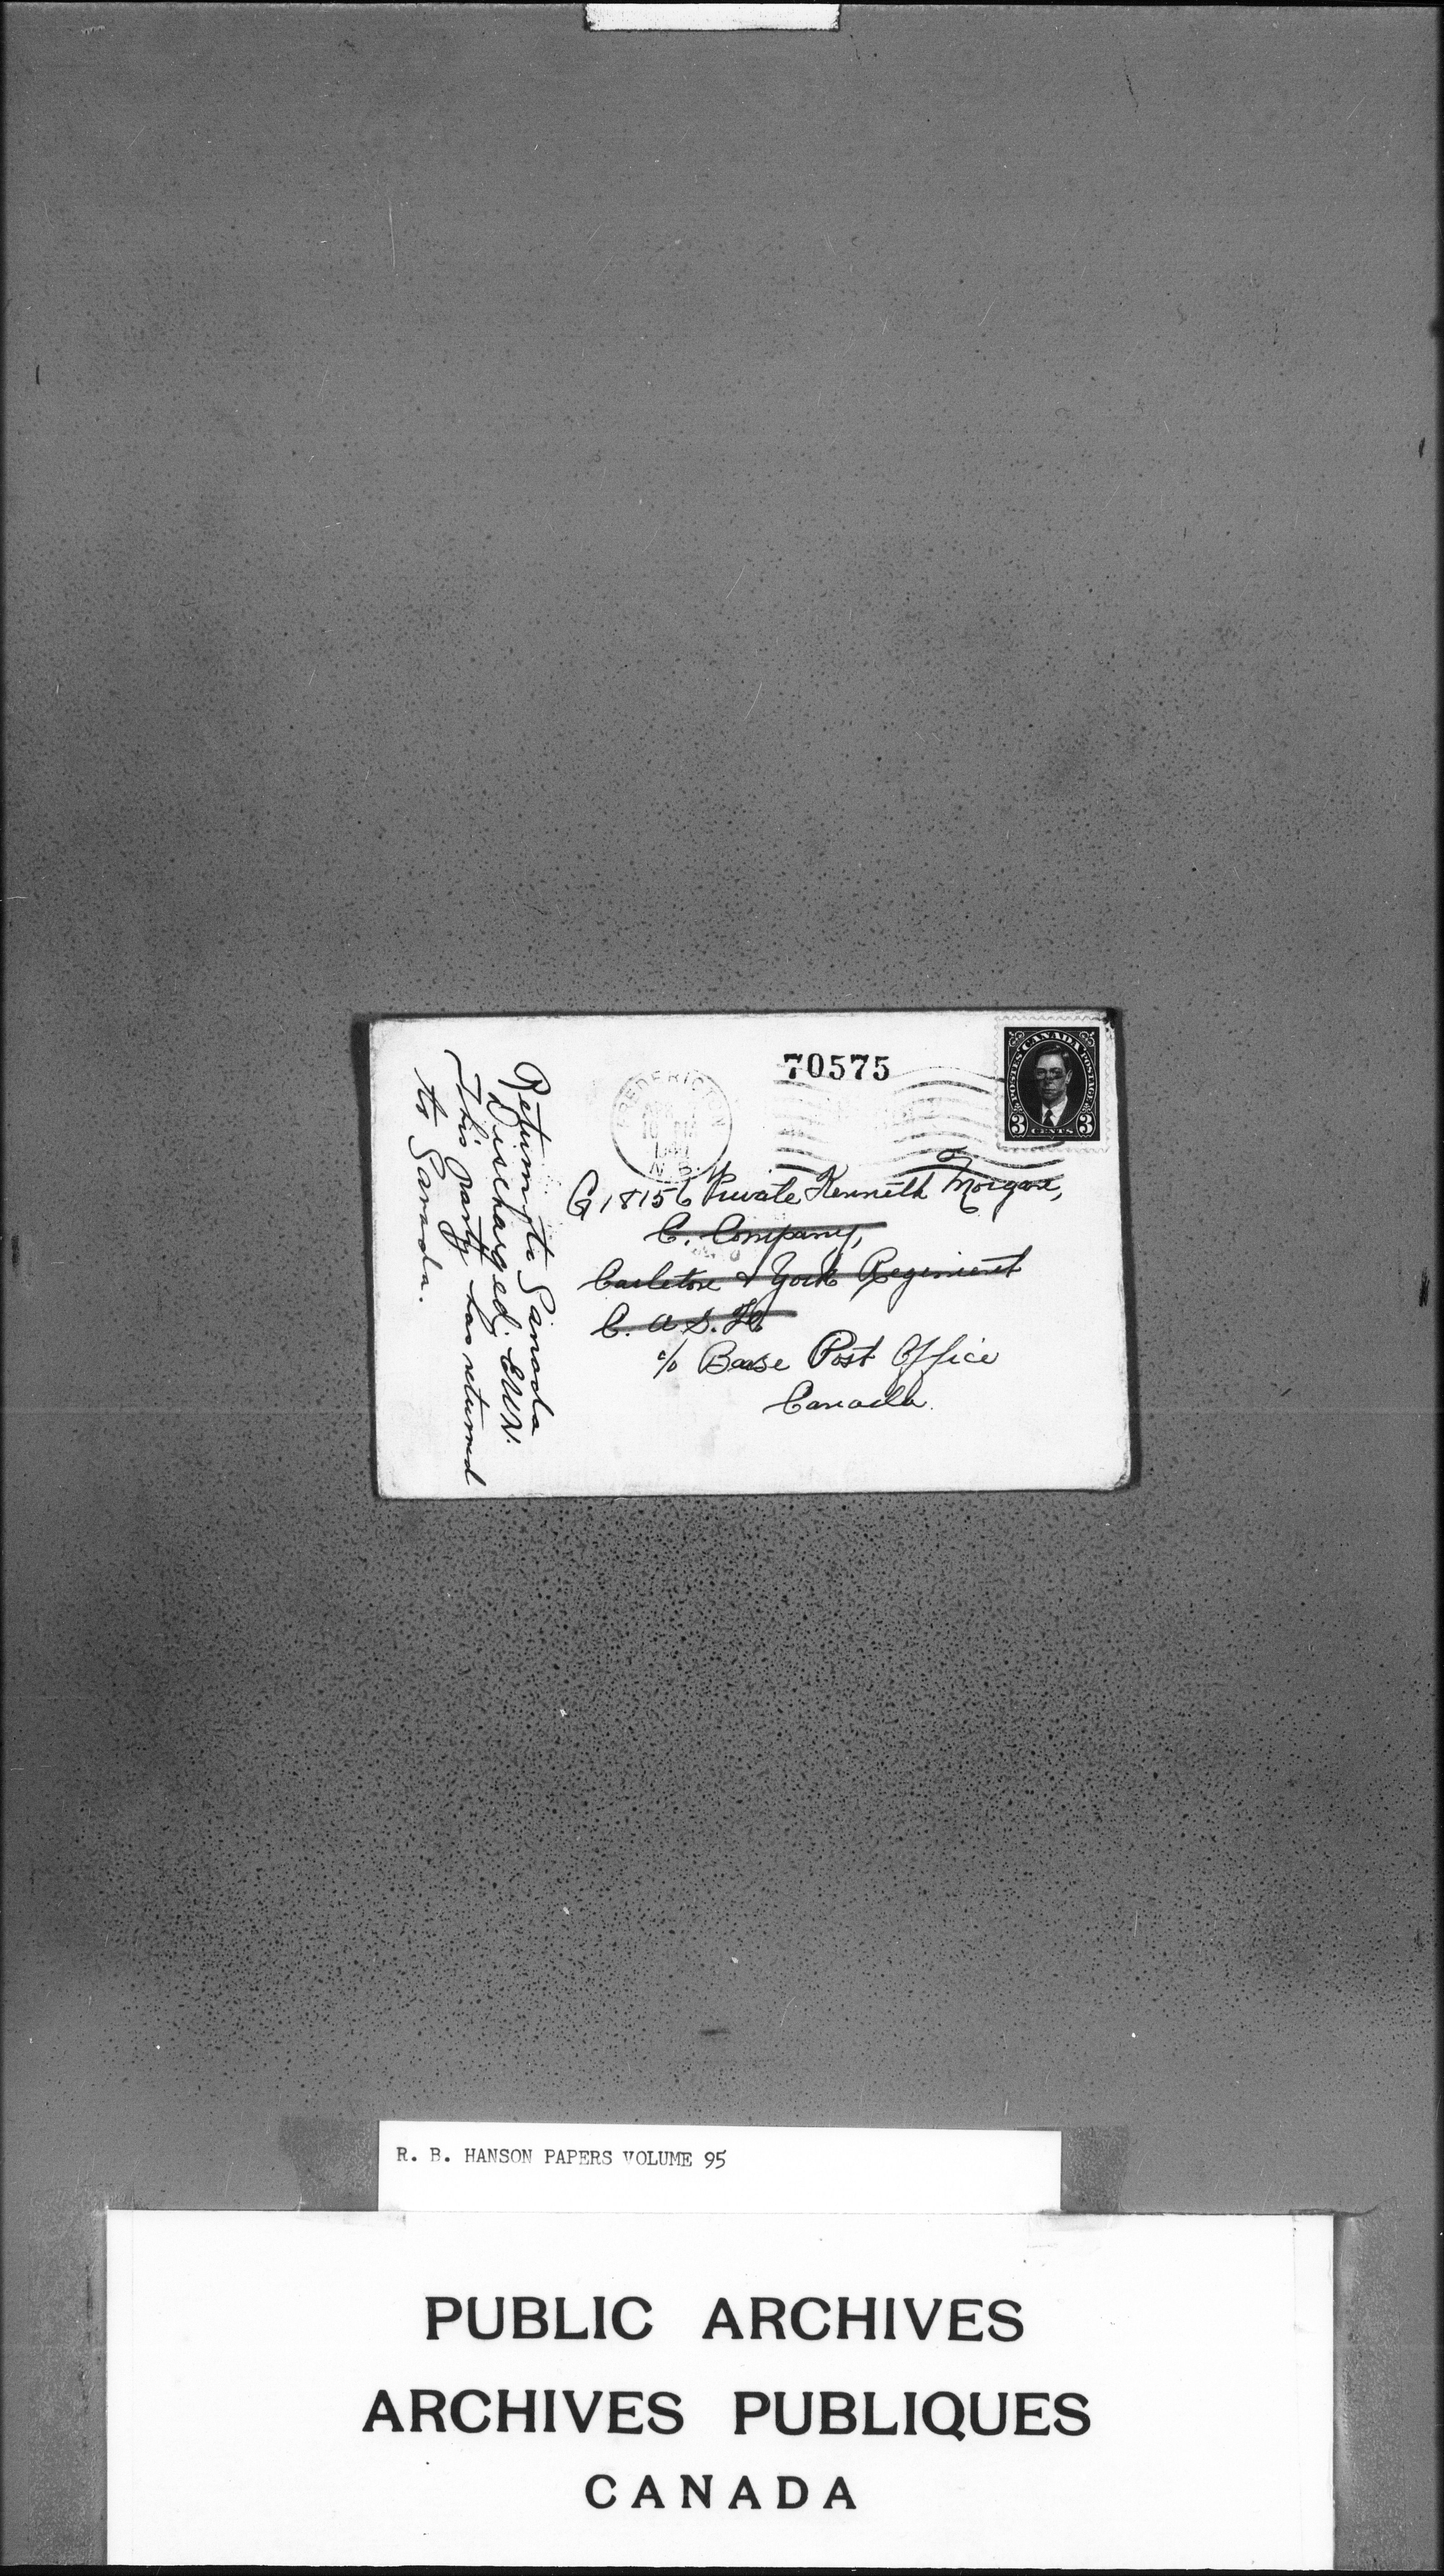 70575
FREDERICTON
N.B.
POSTES CANADA POSTAGE
3 CENTS 3
G 18156 Private Kenneth Morgan,
C. Company,
Carleton & York Regiment
C. A. S. F.
c/o Base Post Office
Canada.
Return to Canada
Discharged. EWN.
This Party has returned
to Canada.
R. B. HANSON PAPERS VOLUME 95
PUBLIC ARCHIVES
ARCHIVES PUBLIQUES
CANADA